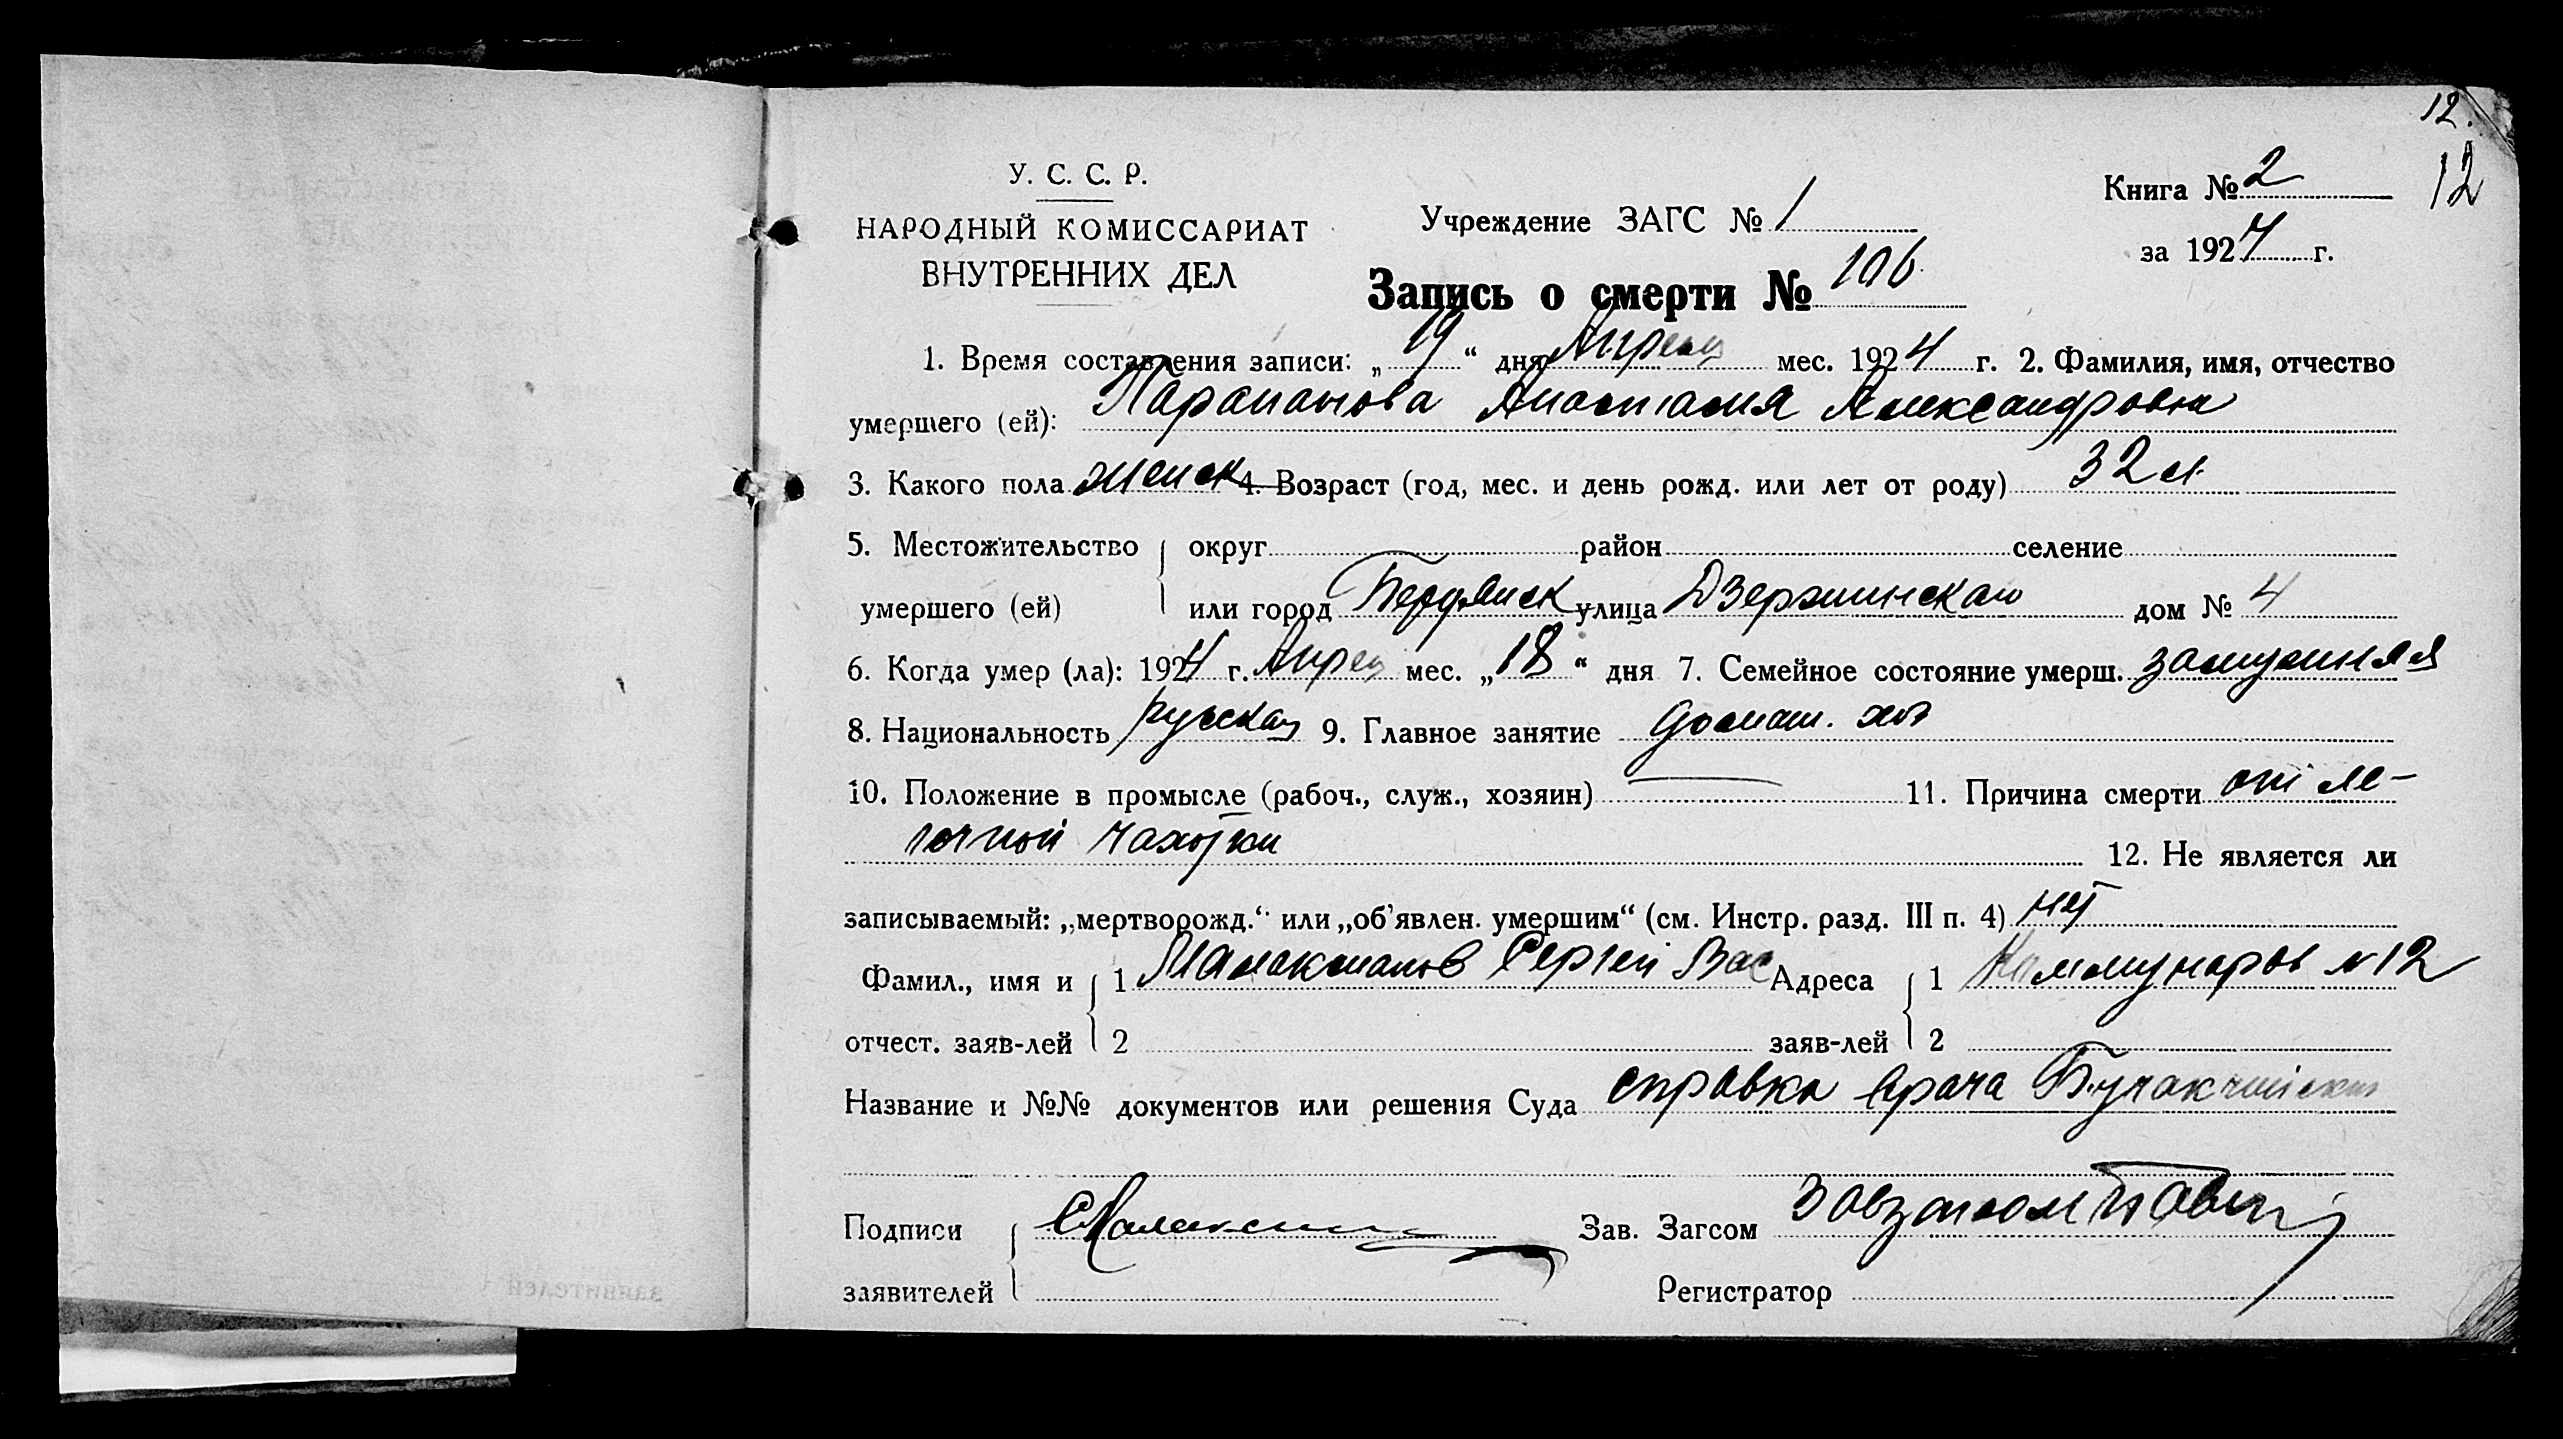 12.
12
У. С. С. Р.
НАРОДНЫЙ КОМИССАРИАТ
ВНУТРЕННИХ ДЕЛ
Учреждение ЗАГС № 1
Книга № 2
за 1924 г.
Запись о смерти № 106
1. Время составления записи: „19“ дня Апреля мес. 1924 г. 2. Фамилия, имя, отчество
умершего (ей): Анастасия Александровна
3. Какого пола женск 4. Возраст (год, мес. и день рожд. или лет от роду) 32 л.
5. Местожительство округ район селение
умершего (ей) или город Бердянск улица Дзержинская дом № 4
6. Когда умер (ла): 1924 г. Апрел мес. „18“ дня 7. Семейное состояние умерш. замужняя
8. Национальность русская 9. Главное занятие домаш. хоз
10. Положение в промысле (рабоч., служ., хозяин) — 11. Причина смерти от ле-
гочной чахотки 12. Не является ли
записываемый: „мертворожд.“ или „об’явлен. умершим“ (см. Инстр. разд. III п. 4) нет
Фамил., имя и 1 Сергей Вас Адреса 1 Коммунаров № 12
отчест. заяв-лей 2 заяв-лей 2
Название и №№ документов или решения Суда справка врача
Подписи Зав. Загсом Завзагсом
заявителей Регистратор